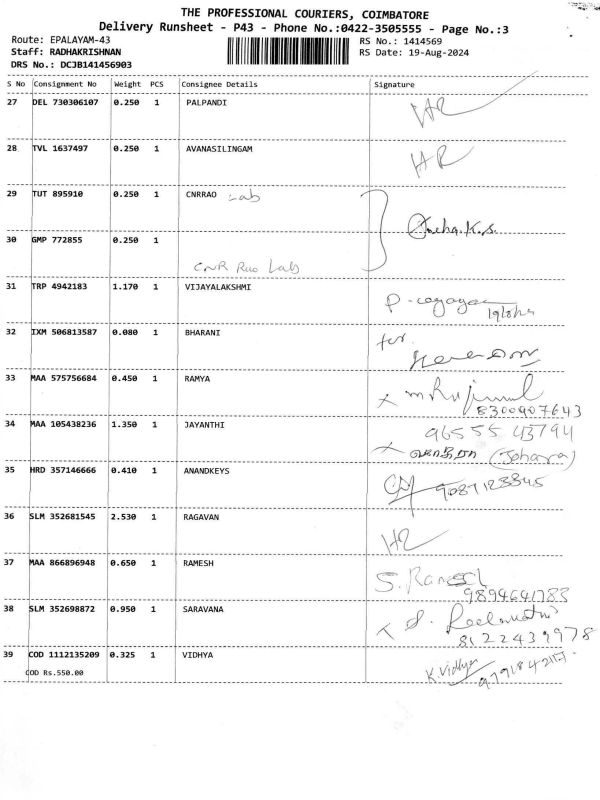 THE PROFESSIONAL COURIERS, COIMBATORE
Delivery Runsheet - P43 - Phone No.:0422-3505555 - Page No.:3
Route: EPALAYAM-43
RS No.: 1414569
Staff: RADHAKRISHNAN
RS Date: 19-Aug-2024
DRS No.: DCJB141456903
S No Consignment No Weight PCS Consignee Details Signature
27 DEL 730306107 0.250 1 PALPANDI HR
28 TVL 1637497 0.250 1 AVANASILINGAM HR
29 TUT 895910 0.250 1 CNRRAO Lab
30 GMP 772855 0.250 1
CNR Rao Lab
31 TRP 4942183 1.170 1 VIJAYALAKSHMI
32 IXM 506813587 0.080 1 BHARANI
for
33 MAA 575756684 0.450 1 RAMYA
8300907643
34 MAA 105438236 1.350 1 JAYANTHI 96555 43794
(Johara)
35 HRD 357146666 0.410 1 ANANDKEYS
9087123345
36 SLM 352681545 2.530 1 RAGAVAN HR
37 MAA 866896948 0.650 1 RAMESH S. Ramesh
9894641783
38 SLM 352698872 0.950 1 SARAVANA
8122439978
39 COD 1112135209 0.325 1 VIDHYA K. Vidhya
COD Rs.550.00